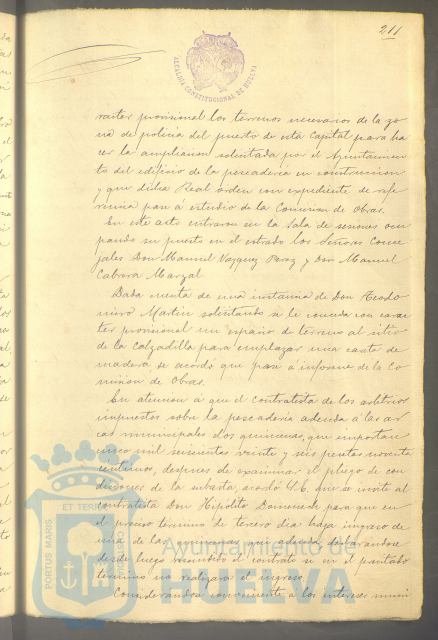 211
ALCALDIA CONSTITUCIONAL DE HUELVA
racter provisional los terrenos necesarios de la zo
na de policia del puerto de esta Capital para ha
cer la ampliacion solicitada por el Ayuntamien
to del edificio de la pescaderia en construccion
y que dicha Real orden con expediente de refe
rencia pase á estudio de la Comision de Obras.
En este acto entraron en la Sala de sesiones ocu
pando su puesto en el estrado los Señores Conce
jales Don Manuel Vazquez Perez y Don Manuel
Cabrera Marzal
Dada cuenta de una instancia de Don Teodo
miro Martin solicitando se le conceda con carac
ter provisional un espacio de terreno al sitio
de la Calzadilla para emplazar una caseta de
madera se acordó que pase á informe de la Co
mision de Obras.
En atencion á que el contratista de los arbitrios
impuestos sobre la pescaderia adeuda á las ar
cas municipales dos quincenas, que importan
cinco mil seiscientas veinte y seis pesetas noventa
centimos, despues de examinar el pliego de con
diciones de la subasta, acordó S.E. que se invite al
contratista Don Hipolito Domenech para que en
el preciso termino de tercero dia haga ingreso de
una de las quincenas que adeuda declarandose
desde luego rescindido el contrato si en el précitado
termino no realizara el ingreso.
Considerandose conveniente á los intereses muni
PORTUS MARIS ET TERRAE CUSTODIO
Ayuntamiento de
HUELVA